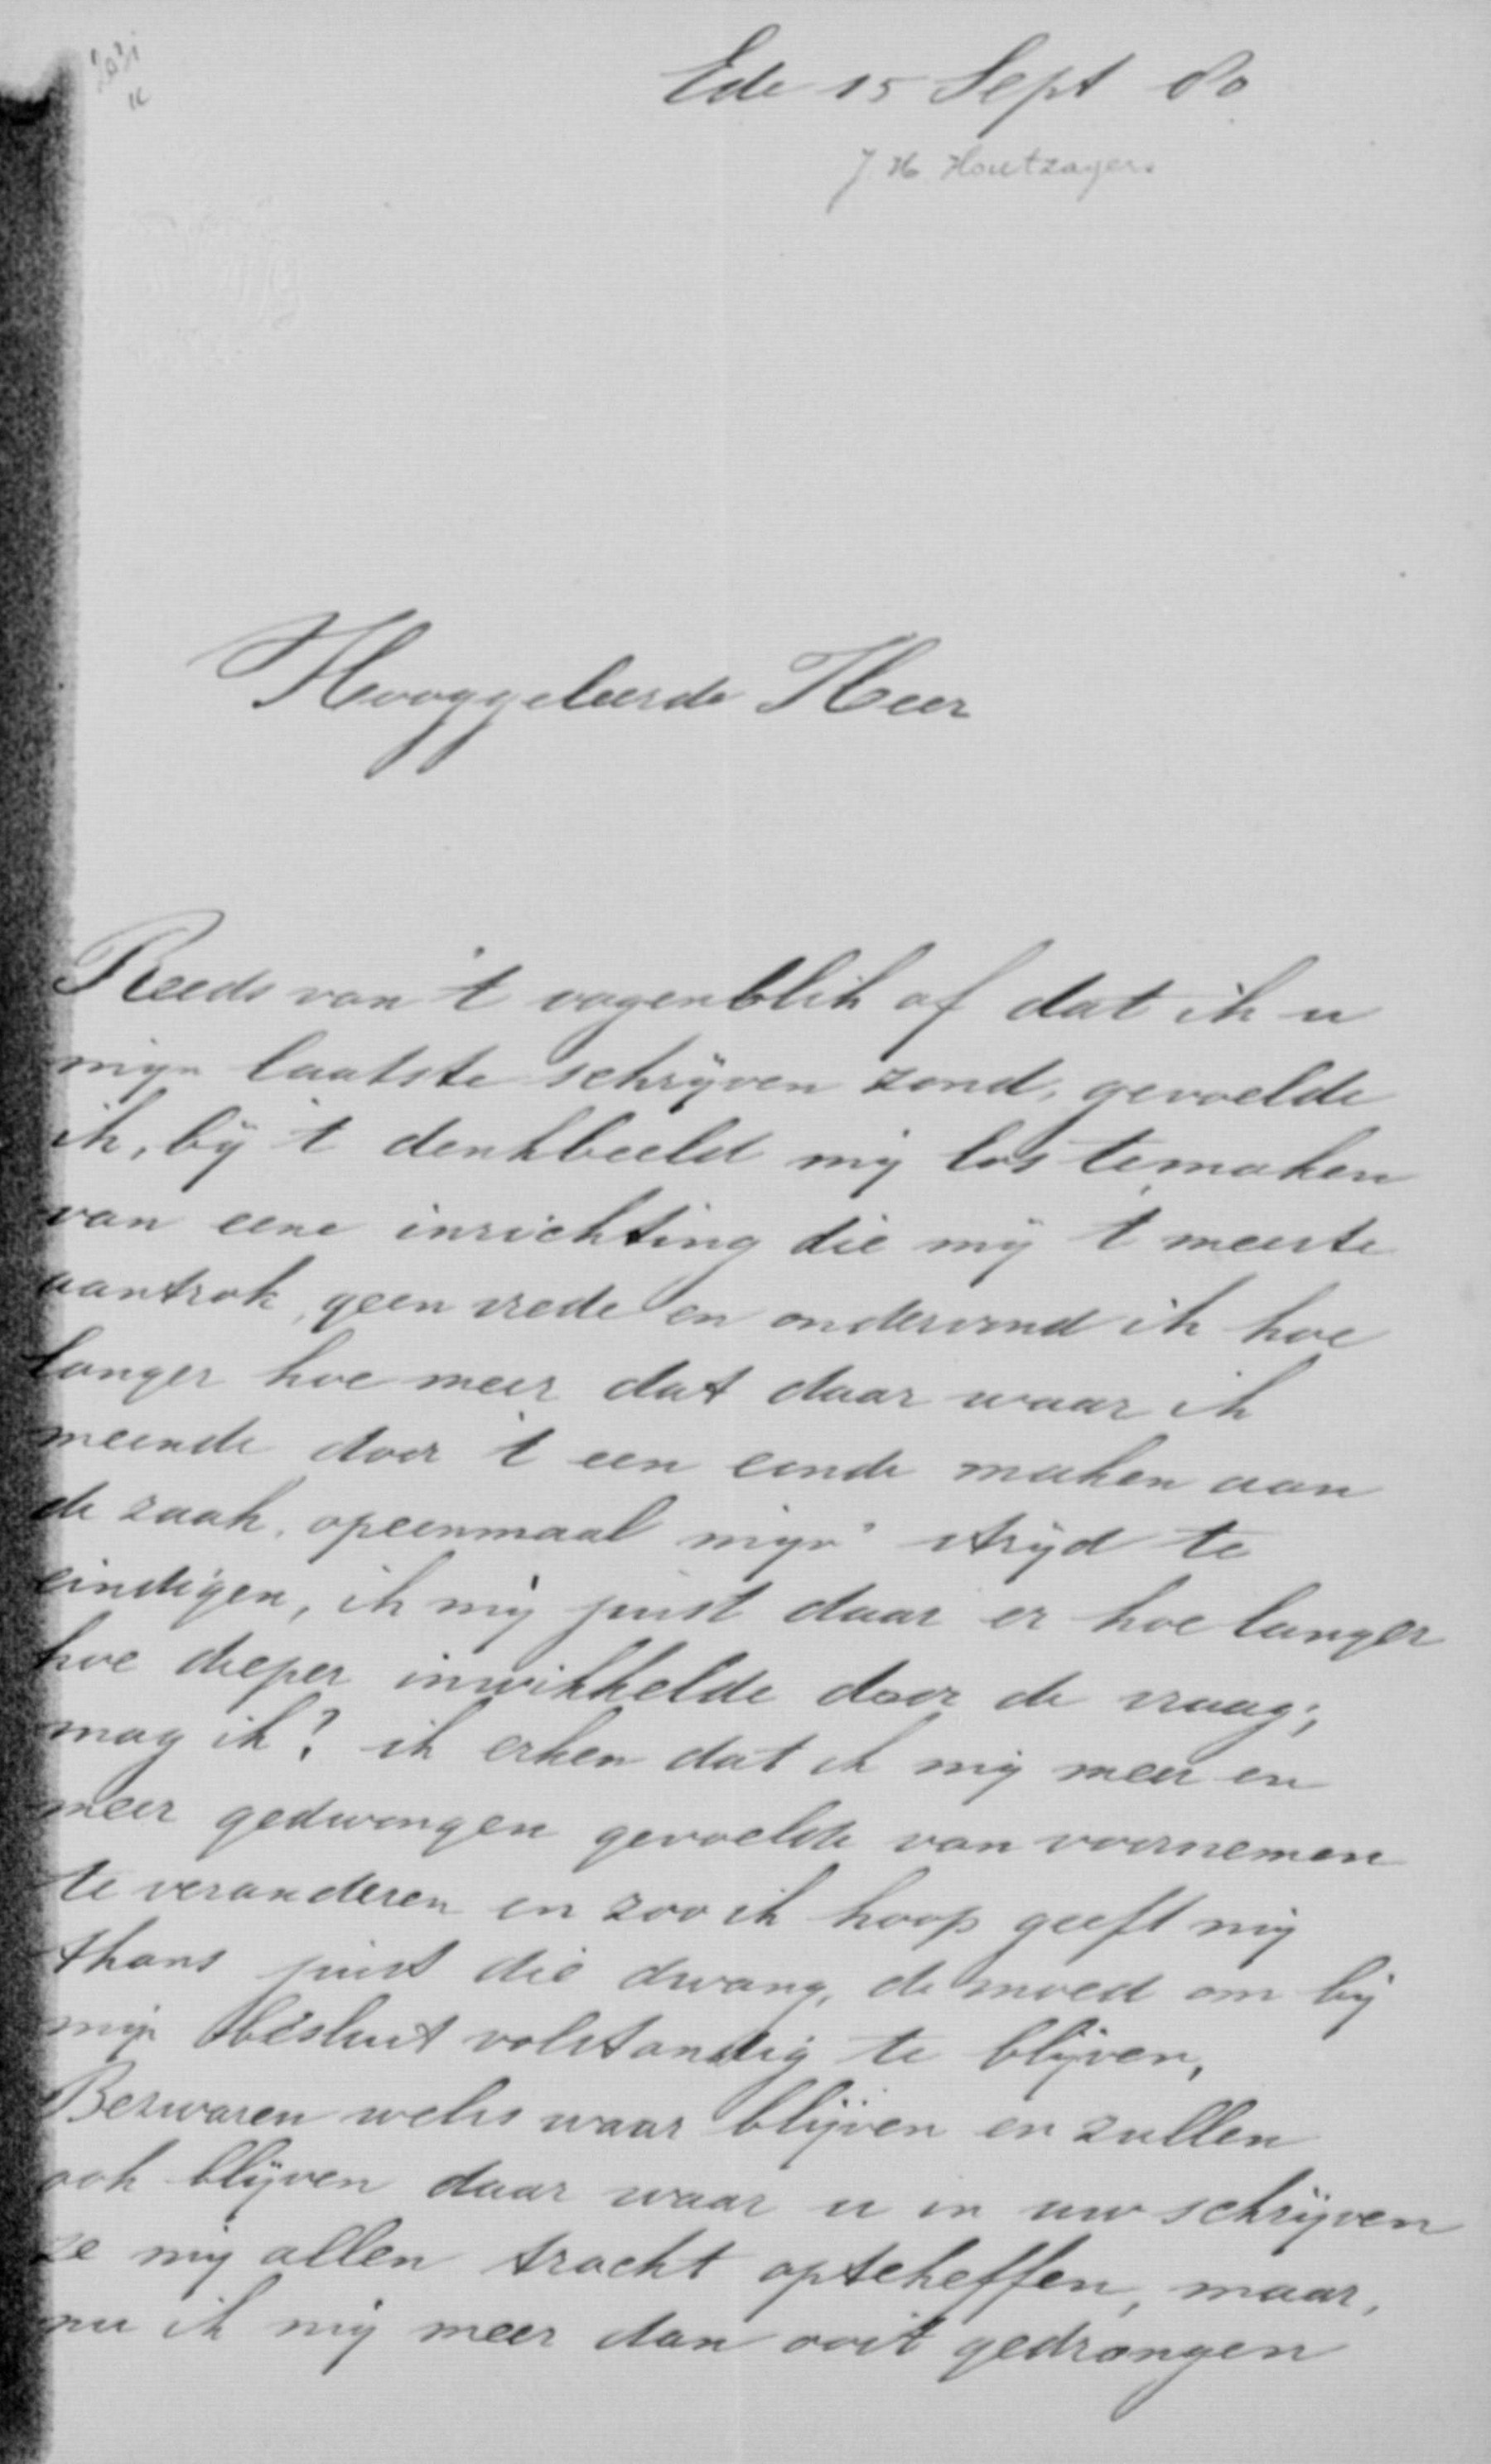 Ede 15 Sept 80
J. H. Houtzagers
Hooggeleerde Heer
Reeds van 't oogenblik af dat ik u
mijn laatste schrijven zond, gevoelde
ik, bij 't denkbeeld mij los te maken
van eene inrichting die mij 't meeste
aantrok, geen vrede en ondervond ik hoe
langer hoe meer dat daar waar ik
meende door 't een einde maken aan
de zaak, opeenmaal mijn strijd te
eindigen, ik mij juist daar er hoe langer
hoe dieper inwikkelde door de vraag;
mag ik? ik erken dat ik mij meer en
meer gedwongen gevoelde van voornemen
te veranderen en zoo ik hoop geeft mij
thans juist die dwang, de moed om bij
mijn besluit volstandig te blijven,
Bezwaren welis waar blijven en zullen
ook blijven daar waar u in uw schrijven
ze mij allen tracht opteheffen, maar,
nu ik mij meer dan ooit gedrongen